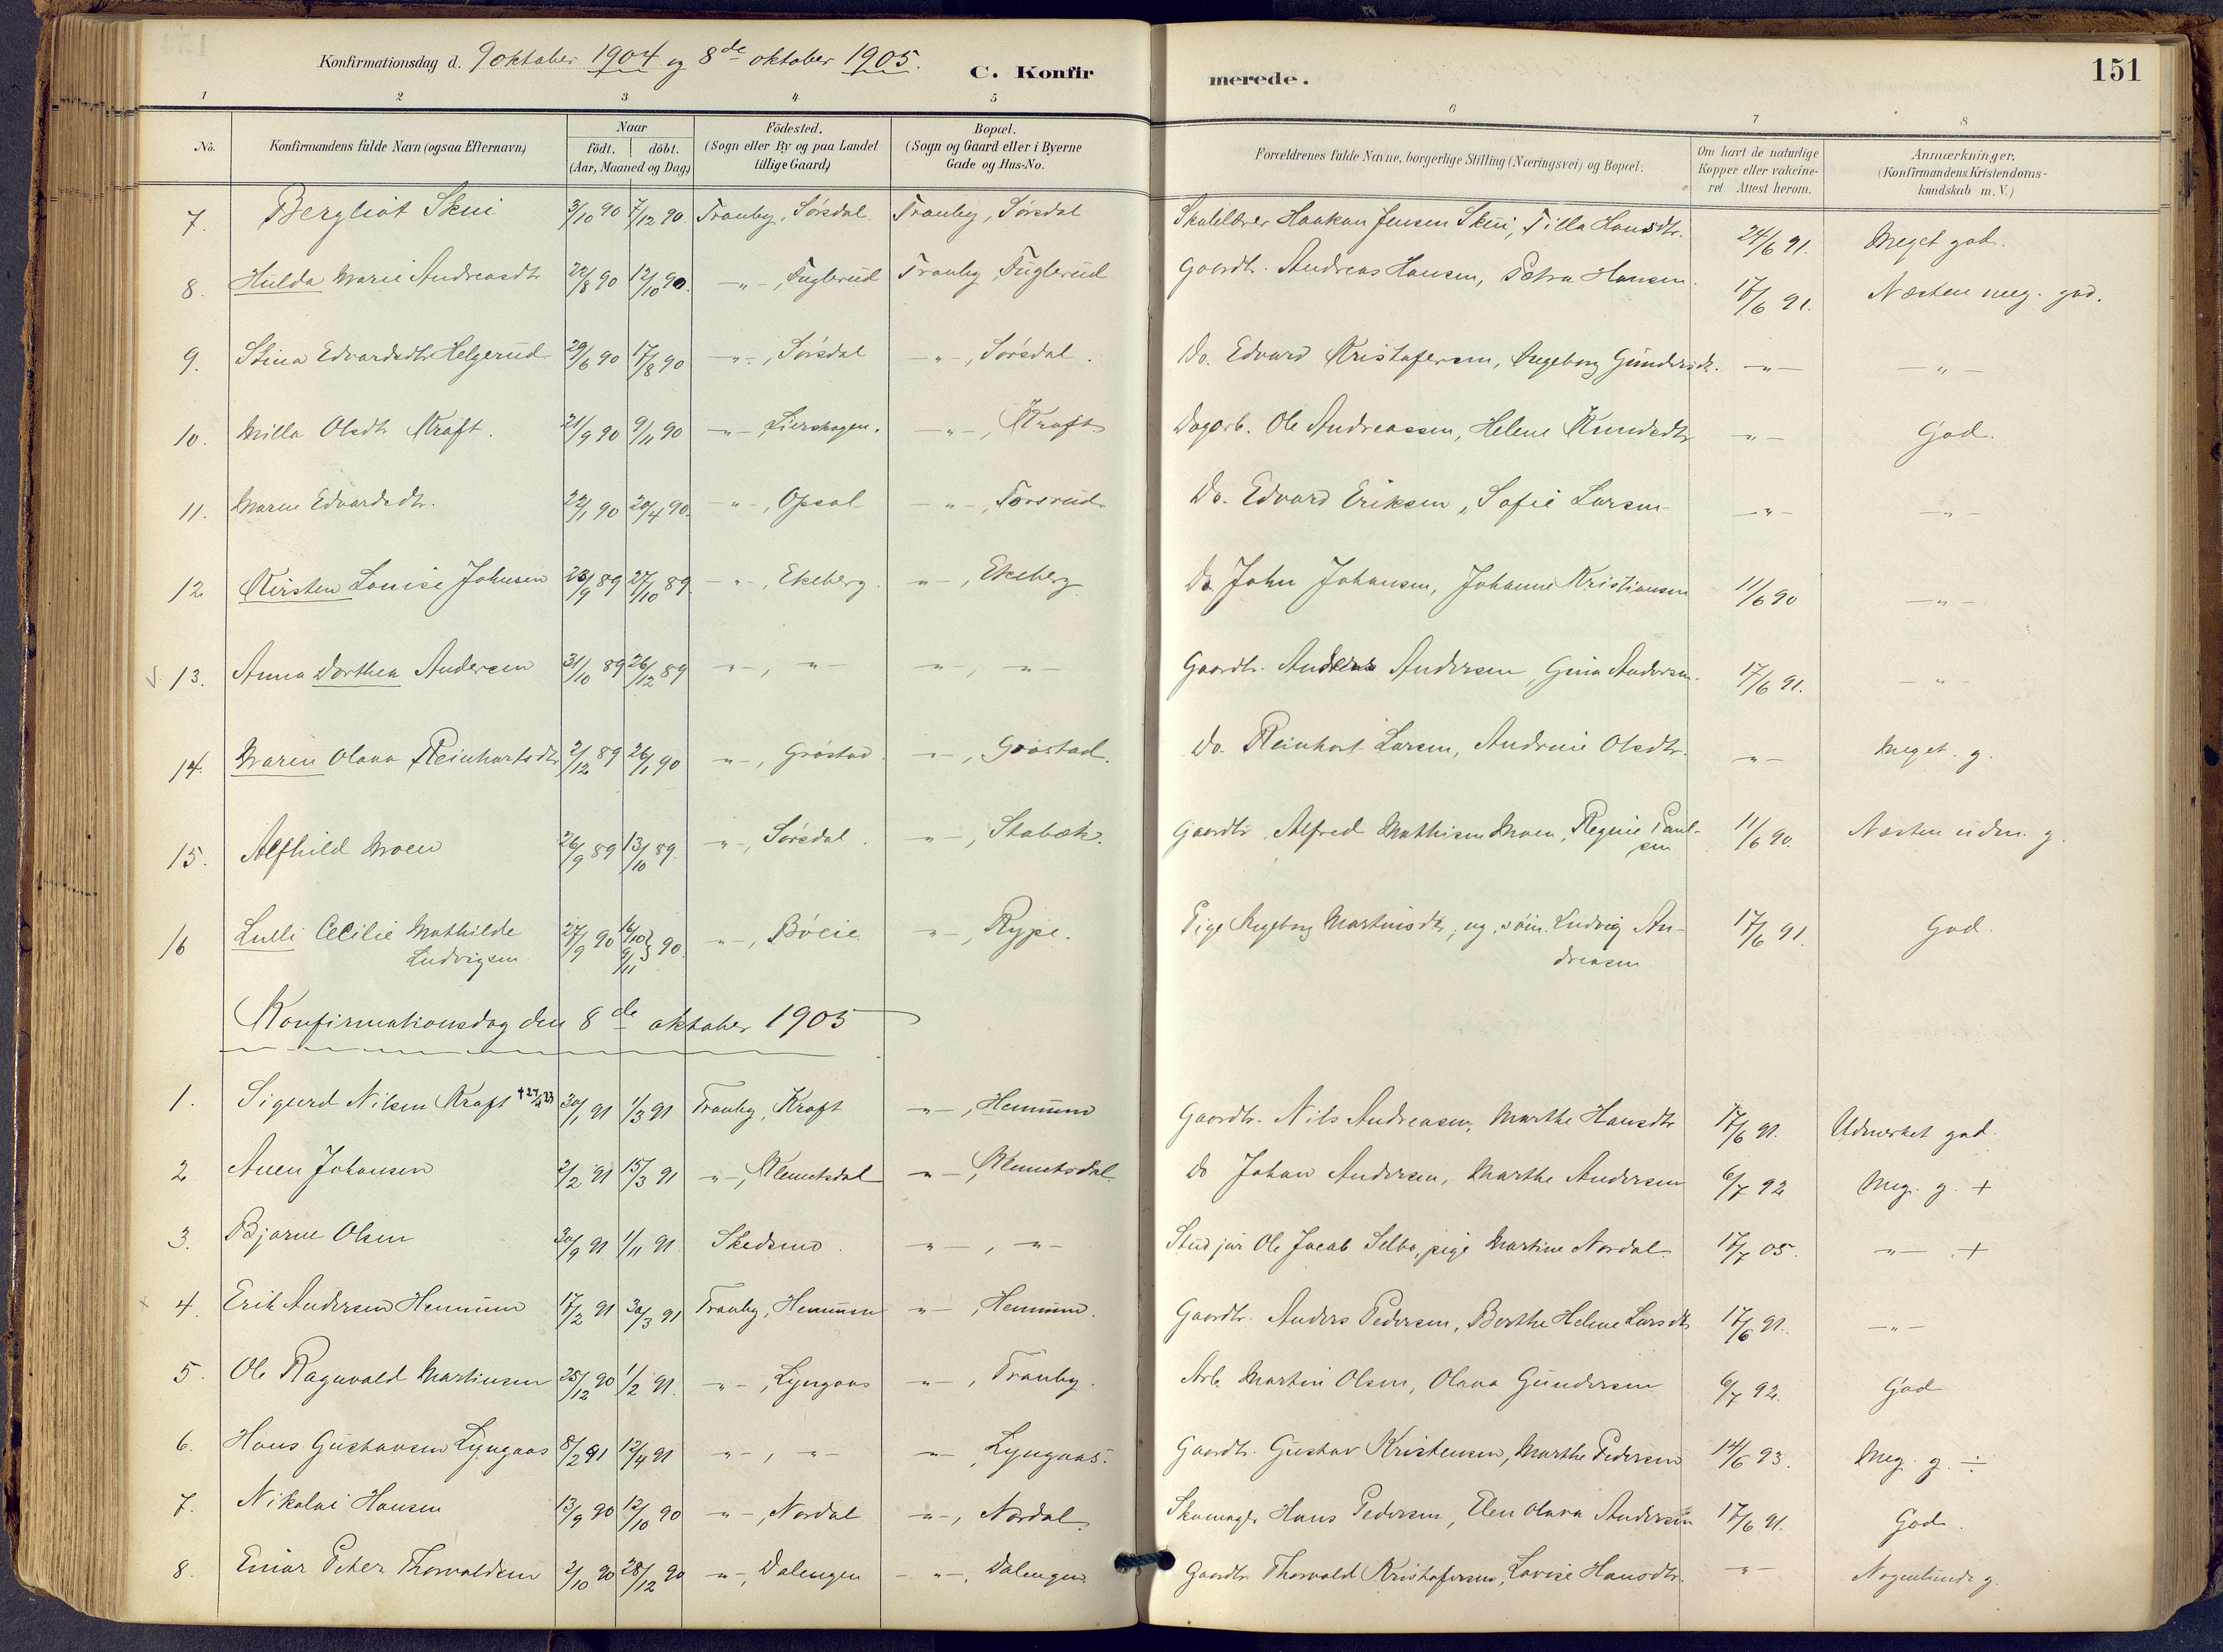 Konfirmationsdag d. 9 oktober 1904 og 8de oktober 1905.
C. Konfirmerede.
151
1 2 3 4 5 6 7 8
No. | Konfirmandens fulde Navn (ogsaa Efternavn) | Naar födt. döbt. (Aar, Maaned og Dag) | Födested. (Sogn eller By og paa Landet tillige Gaard) | Bopæl. (Sogn og Gaard eller i Byerne Gade og Hus-No. | Forældrenes fulde Navne, borgerlige Stilling (Næringsvei) og Bopæl. | Om havt de naturlige Kopper eller vakcineret Attest herom. | Anmærkninger, (Konfirmandens Kristendomskundskab m. V.)
7. Bergliot Skui 3/10 90 7/12 90. Tranby, Sörsdal. Tranby, Sörsdal Skolelærer Haakon Jensen Skui, Tilla Hansdtr. 24/6 91. Meget god.
8. Hulda Marie Andreasdtr 22/8 90 12/10 90. -"-, Fuglerud Tranby Fuglerud Gaardbr. Andreas Hansen, Petra Hansen. 17/6 91. Næsten meg. god.
9. Stina Edvardsdtr Helgerud 29/6 90 17/8 90 -"-, Sörsdal -"-, Sörsdal. Do. Edvard Kristofersen, Ingeborg Gundersdtr. -"- -"-
10. Milla Olsdtr Kraft. 21/9 90 9/11 90 -"- Lierskogen. -"-, Kraft Dagarb. Ole Andreassen, Helene Knudsdtr -"- God.
11. Maren Edvardsdtr. 22/1 90 20/4 90. -"-, Opsal -"-, Torsrud Do. Edvard Eriksen, Sofie Larsen -"- -"-
12 Kirsten Lovise Johnsen 23/9 89 27/10 89. -"-, Ekeberg. -"-, Ekeberg Do. John Johansen, Johanne Kristiansen 11/6 90 -"-
13. Anna Dorthea Andersen 31/10 89 26/12 89 -"-, -"- -"-, -"- Gaardbr. Andreas Andersen, Gina Andersen. 17/6 91. -"-
14. Maren Olava Reinhartsdtr 2/12 89 26/1 90 -"-, Gröstad -"-, Gröstad. Do. Reinhart Larsen, Andrine Olsdtr. -"- Meget. g.
15. Alfhild Moen 26/9 89 13/10 89. -"-, Sörsdal. -"-, Stabæk. Gaardbr. Alfred Mathisen Moen, Regine Paul-
sen 11/6 90. Næsten udm. g.
16 Lulli Cecilie Mathilde 27/9 90 16/10 9/11 } 90. -"-, Böeie -"-, Rype. Pige Ingeborg Martinsdtr, ug. söm. Ludvig An- 17/6 91. God.
Ludvigsen dreasen
Konfirmationsdag den 8de oktober 1905
1. Sigurd Nilsen Kraft 30/1 91 1/3 91 Tranby, Kraft -"-, Hennum Gaardbr. Nils Andreasen, Marthe Hansdtr 17/6 91. Udmerket god.
2 Anen Johansen 2/2 91 15/3 91 -"-, Klemetsdal -"-, Klemetsdal. Do Johan Andersen, Marthe Andersen 6/7 92 Meg. g. +
3. Bjarne Olsen 30/9 91 1/11 91 Skedsmo. -"-, -"- Stud jur Ole Jacob Selbo, pige Martine Nordal. 17/7 05. -"- +
4. Erik Andersen Hennum 17/2 91 30/3 91 Tranby, Hennum -"-, Hennum. Gaardbr. Anders Pedersen, Berthe Helene Larsdtr 17/6 91. -"-
5. Ole Ragnvald Martinsen 25/12 90 1/2 91. -"-, Lyngaas -"-, Tranby. Arb. Martin Olsen, Olava Gundersen 6/7 92. God
6. Hans Gustavsen Lyngaas 8/2 91 12/4 91 -"-, -"- -"- Lyngaas. Gaardbr. Gustav Kristensen, Marthe Pedersen 14/6 93. Meg. g. ÷
7. Nikolai Hansen 13/9 90 12/10 90 -"-, Nordal -"-, Nordal. Skomager Hans Pedersen, Elen Olava Andersen 17/6 91. God.
8. Einar Peter Thorvaldsen 2/10 90 28/12 90 -"-, Dalengen -"-, Dalengen. Gaardbr. Thorvald Kristofersen, Lovise Hansdtr. -"- Nogenlunde g.